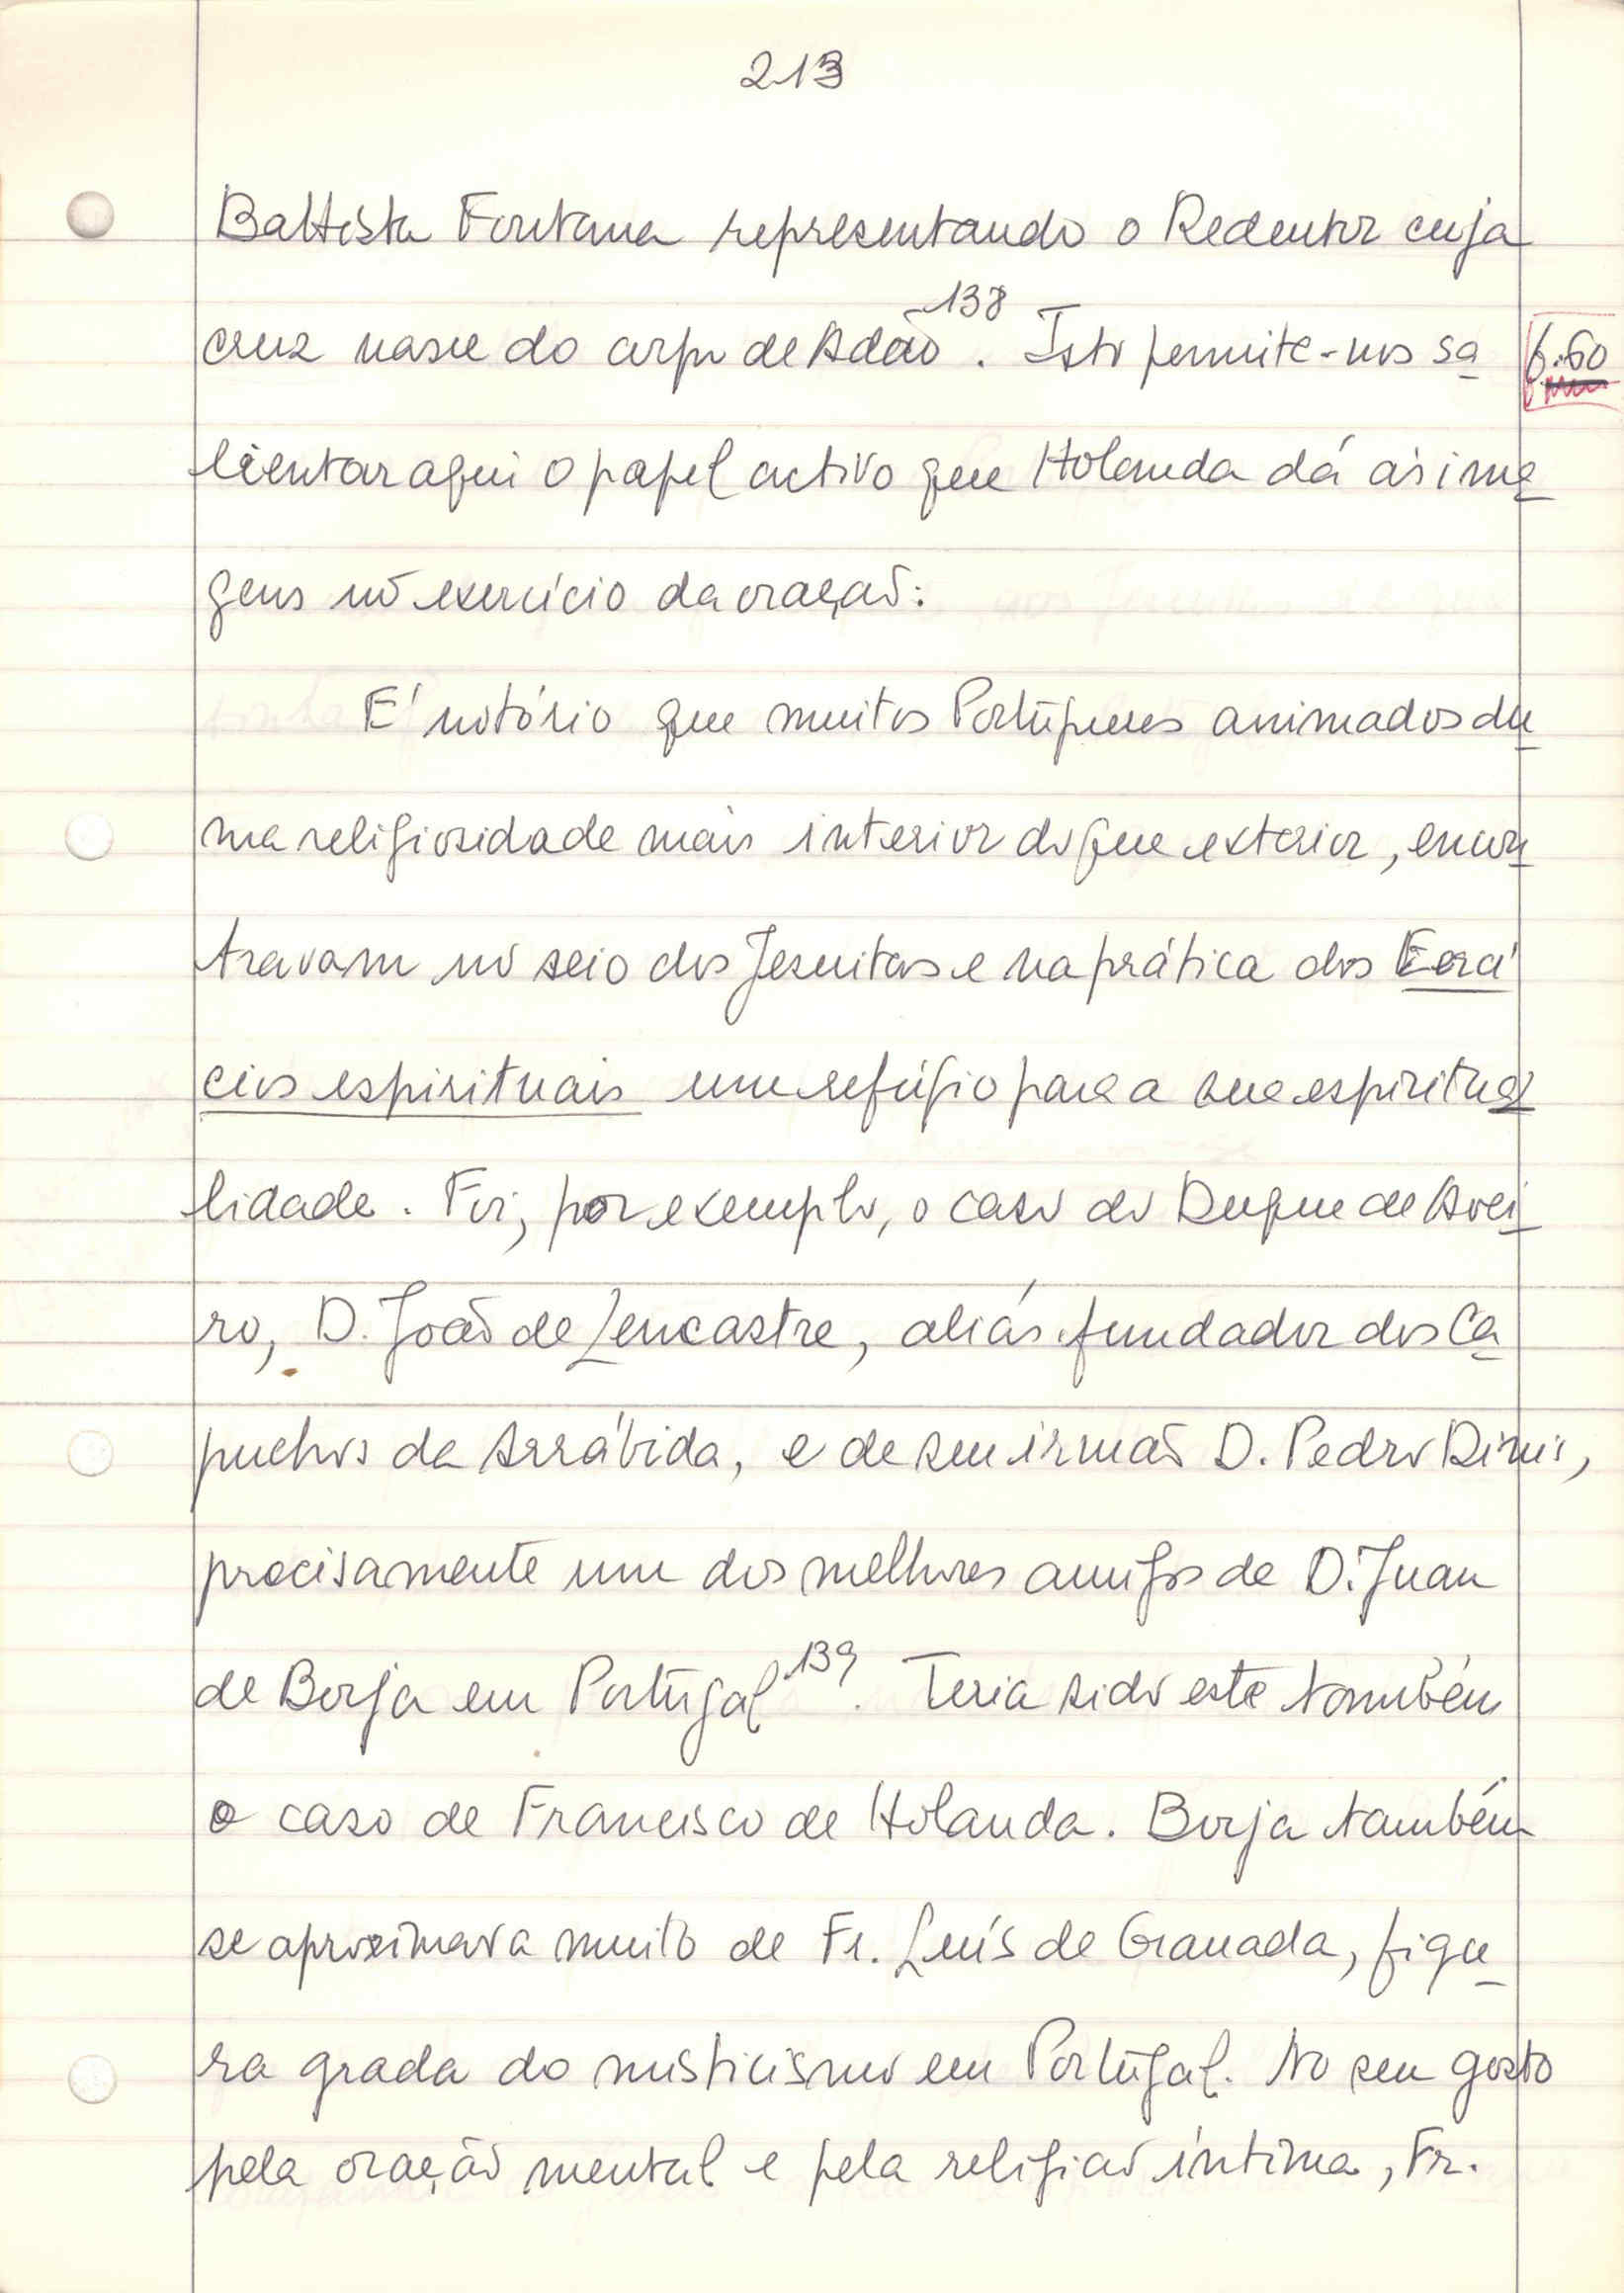 213
Battista Fontana representando o Redentor cuja
cruz nasce do corpo de Adão 138. Isto permite-nos sa
lientar aqui o papel activo que Holanda dá às ima
gens no exercício da oração:
É notório que muitos Portugueses animados du
ma religiosidade mais interior do que exterior, encon
travam no seio dos Jesuitas e na prática dos
cios espirituais um refúgio para a sua espiritua
lidade. Foi, por exemplo, o caso do Duque de Avei
ro, D. João de Lencastre, aliás fundador dos Ca
puchos da Arrábida, e de seu irmão D. Pedro Dinis,
precisamente um dos melhores amigos de D. Juan
de Borja em Portugal 139. Teria sido este também
o caso de Francisco de Holanda. Borja também
se aproximava muito de Fr. Luís de Granada, figu
ra grada do misticismo em Portugal. No seu gosto
pela oração mental e pela religião íntima, Fr.